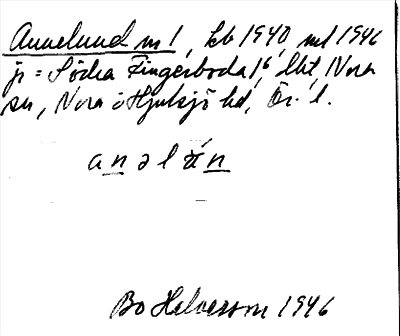 Annelund nr 1, kb 1940, ml 1946
jr = Södra Fingerboda 1⁶, lht, Nora
sn, Nora o Hjulsjö hd, Ör. l.
anəl
Bo Halvarsson 1946